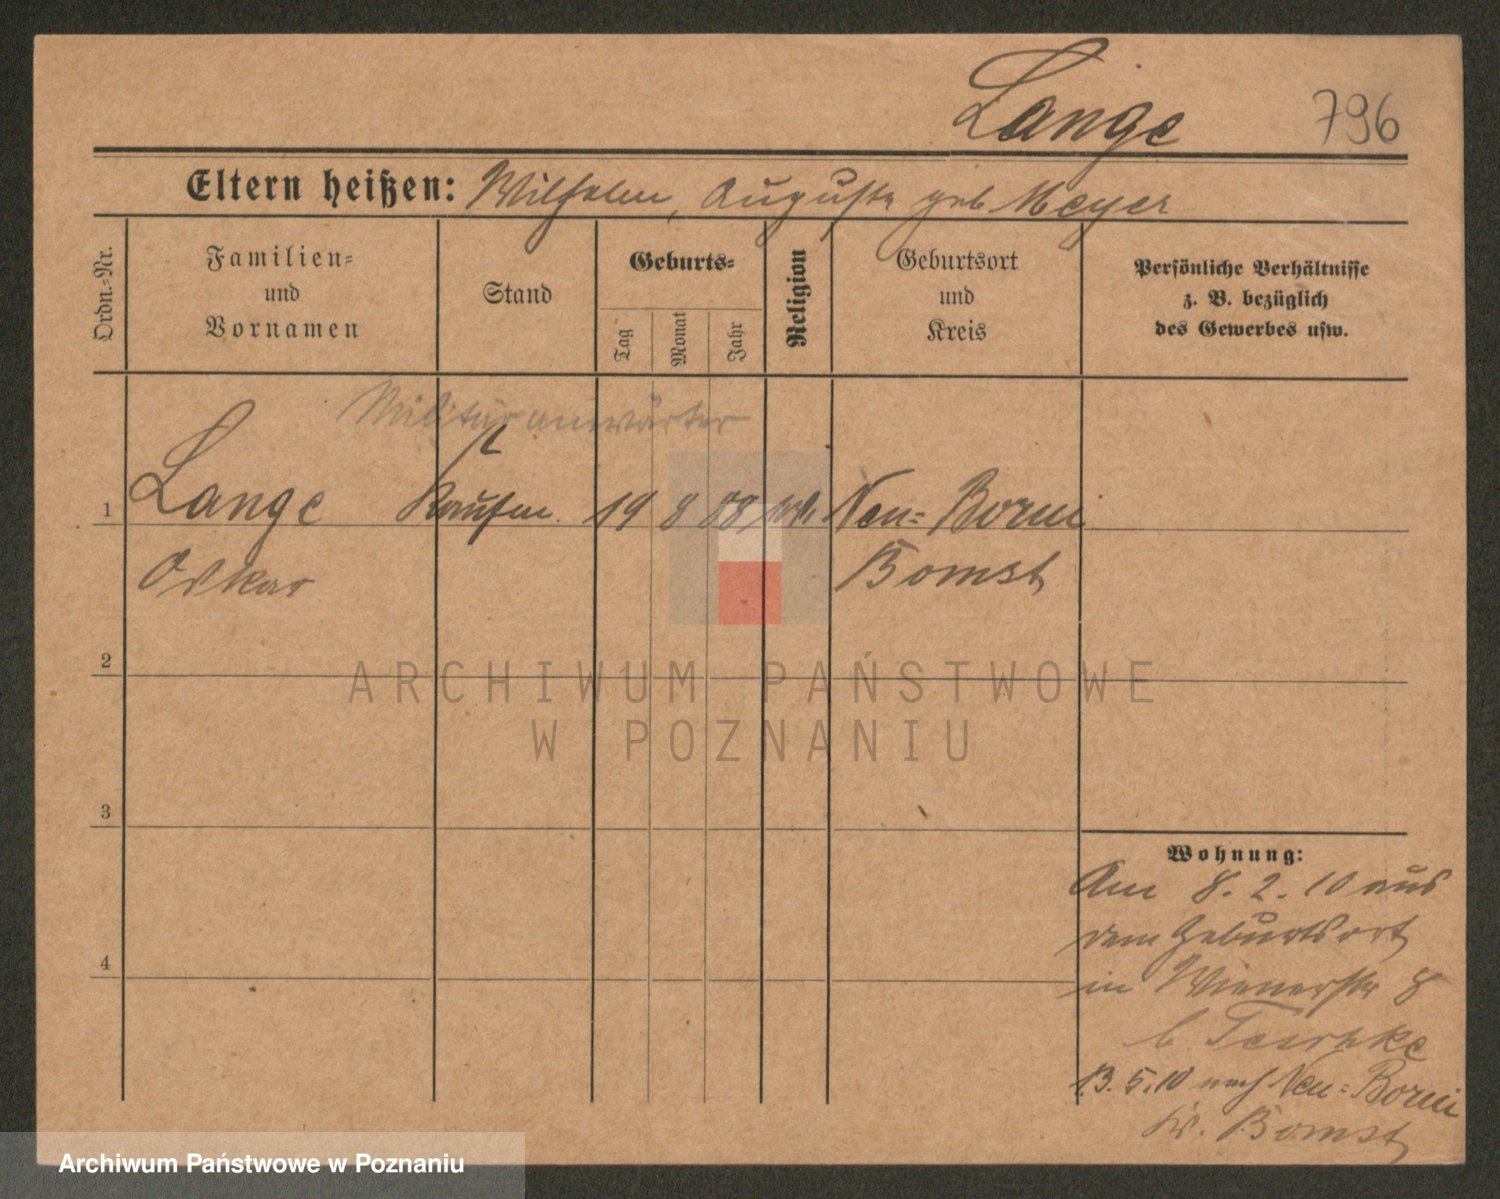 Lange 796
Eltern heißen: Wilhelm, Auguste geb Meyer
Ordn.-Nr.
Familien-
und
Vornamen
Stand
Geburts-
Tag
Monat
Jahr
Religion
Geburtsort
und
Kreis
Persönliche Verhältnisse
z. B. bezüglich
des Gewerbes usw.
Militäranwärter
1 Lange Kaufm. 19 8 88 Neu-Borui
Oskar Bomst
2
3
4
Wohnung:
Am 8.2.10 aus
dem Geburtsort
in Wienerstr 8
b. Teschke
13.5.10 nach Neu-Borui
Kr. Bomst
ARCHIWUM PAŃSTWOWE
W POZNANIU
Archiwum Państwowe w Poznaniu